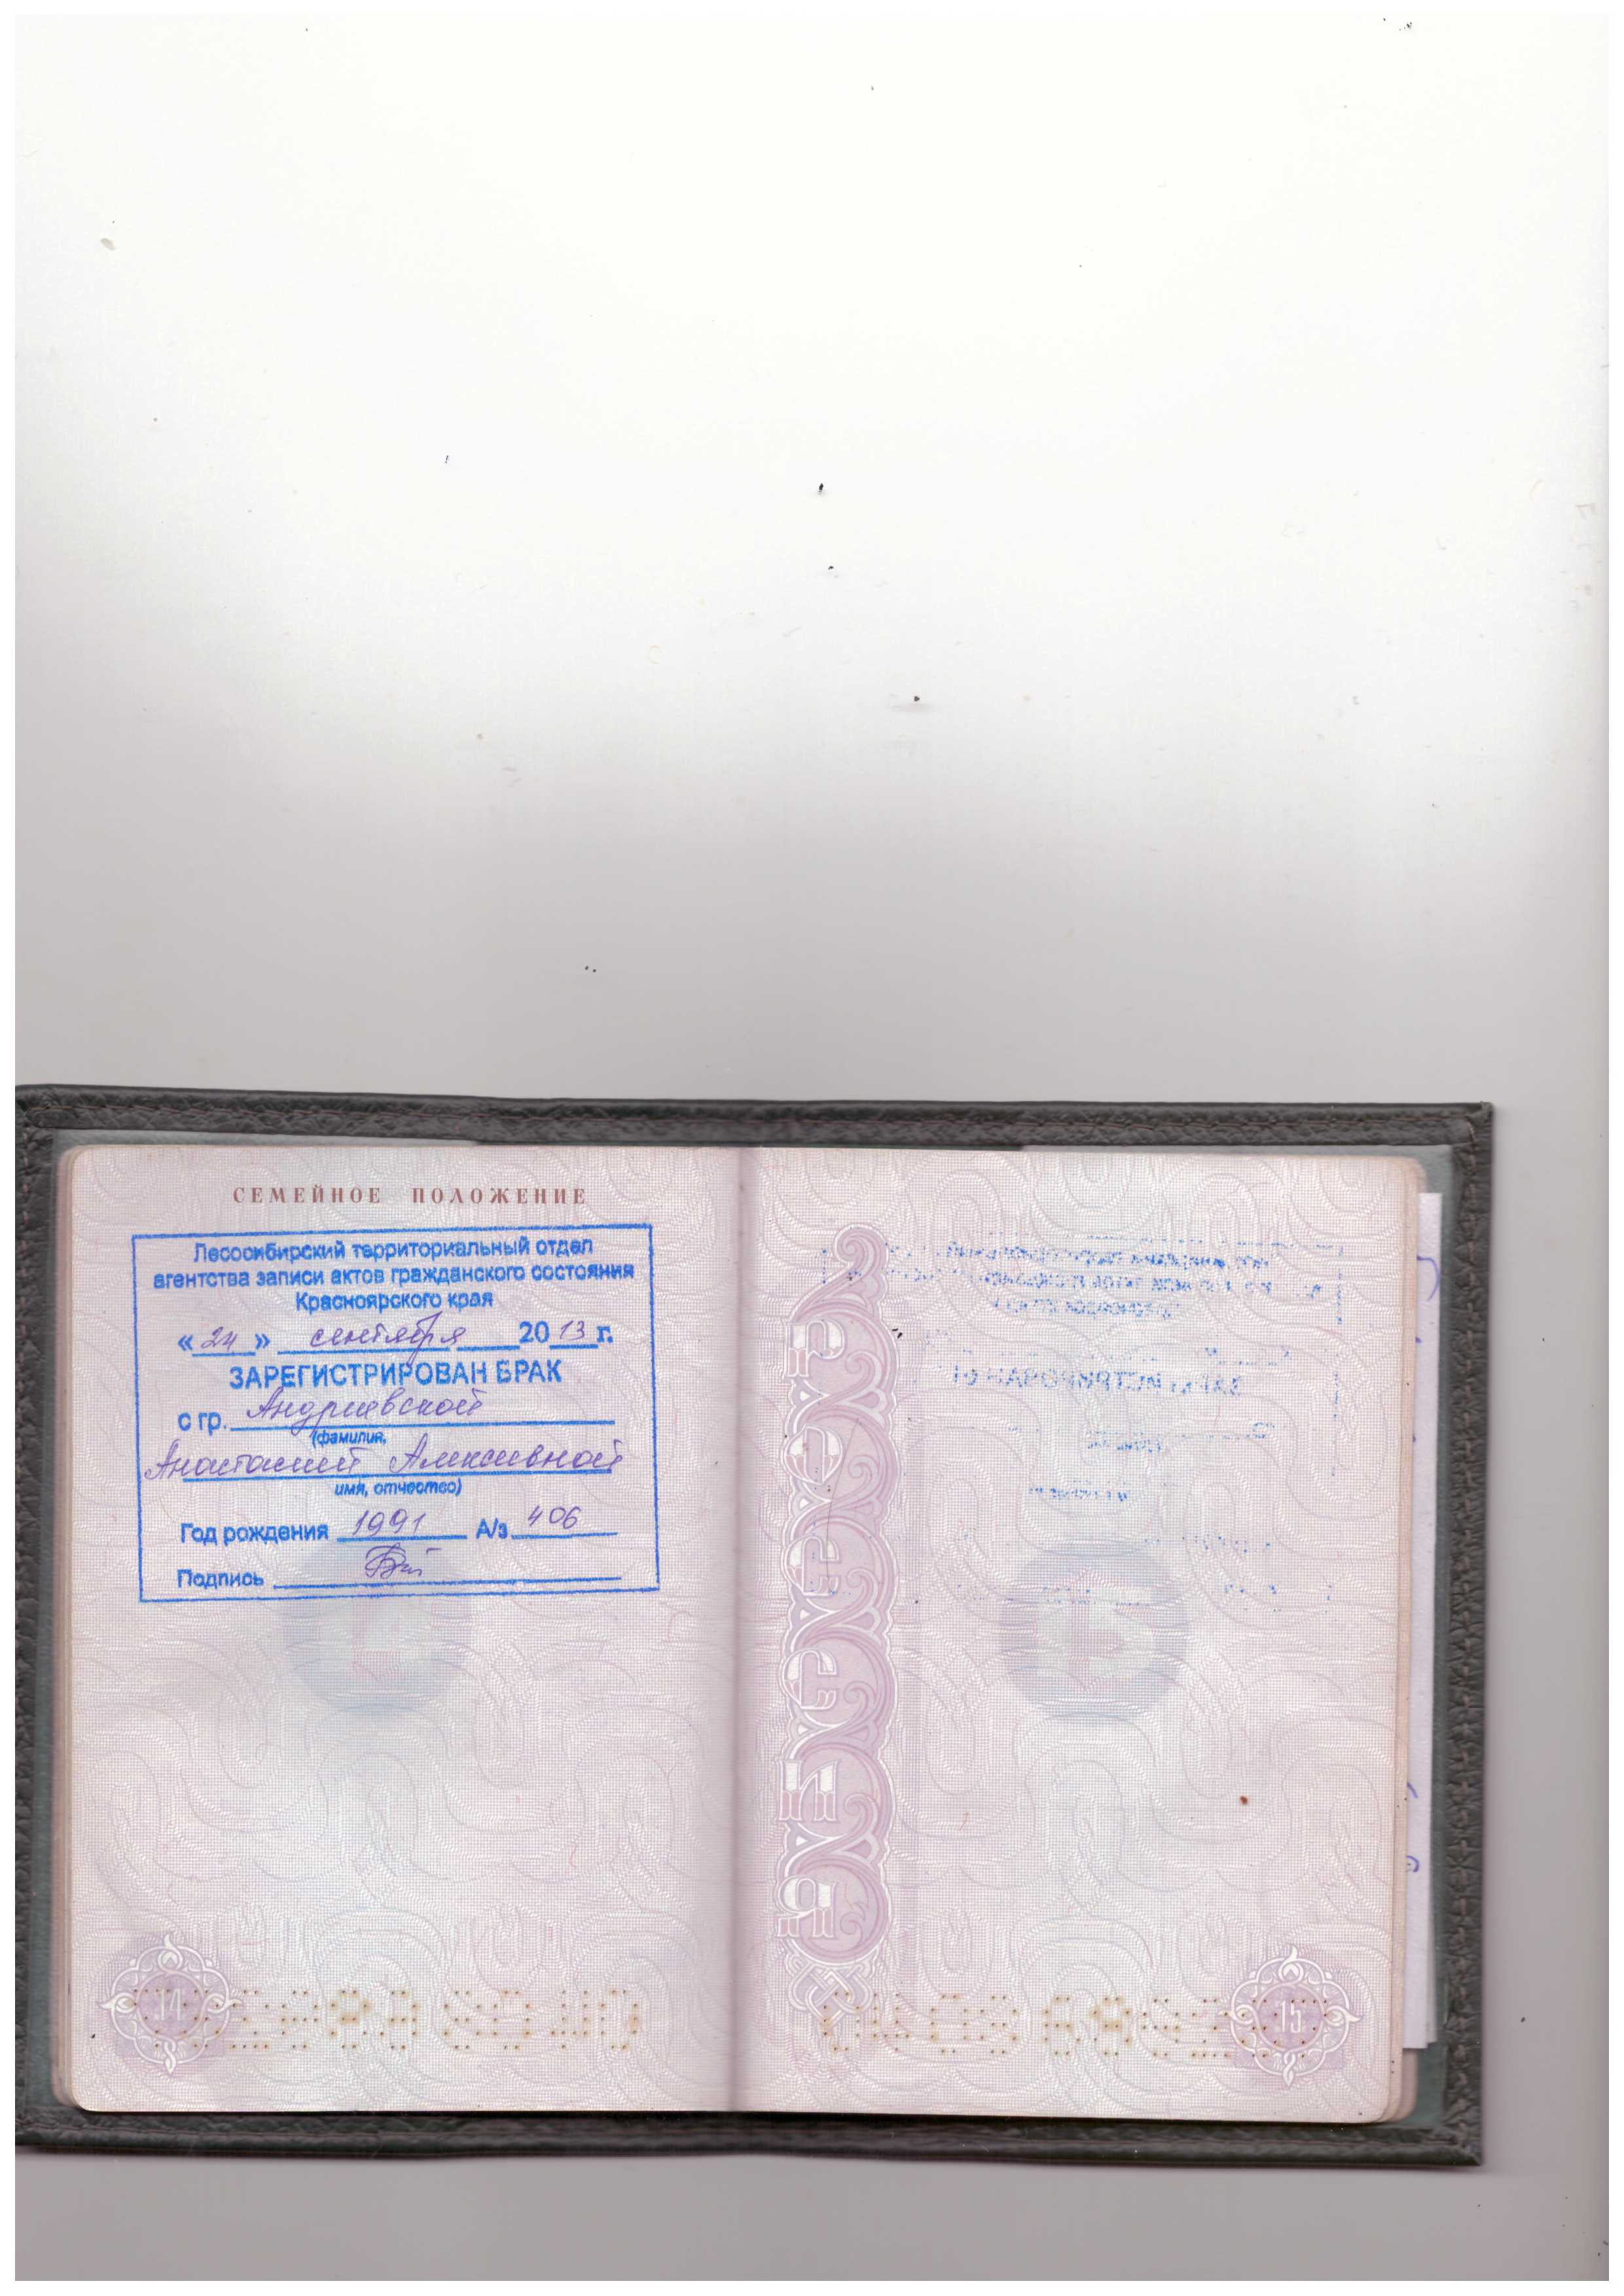 СЕМЕЙНОЕ ПОЛОЖЕНИЕ
Лесосибирский территориальный отдел
агентства записи актов гражданского состояния
Красноярского края
«24» сентября 2013 г.
ЗАРЕГИСТРИРОВАН БРАК
с гр. Андриевской
(фамилия,
Анастасией Алексеевной
имя, отчество)
Год рождения 1991 А/з 406
Подпись
14
15